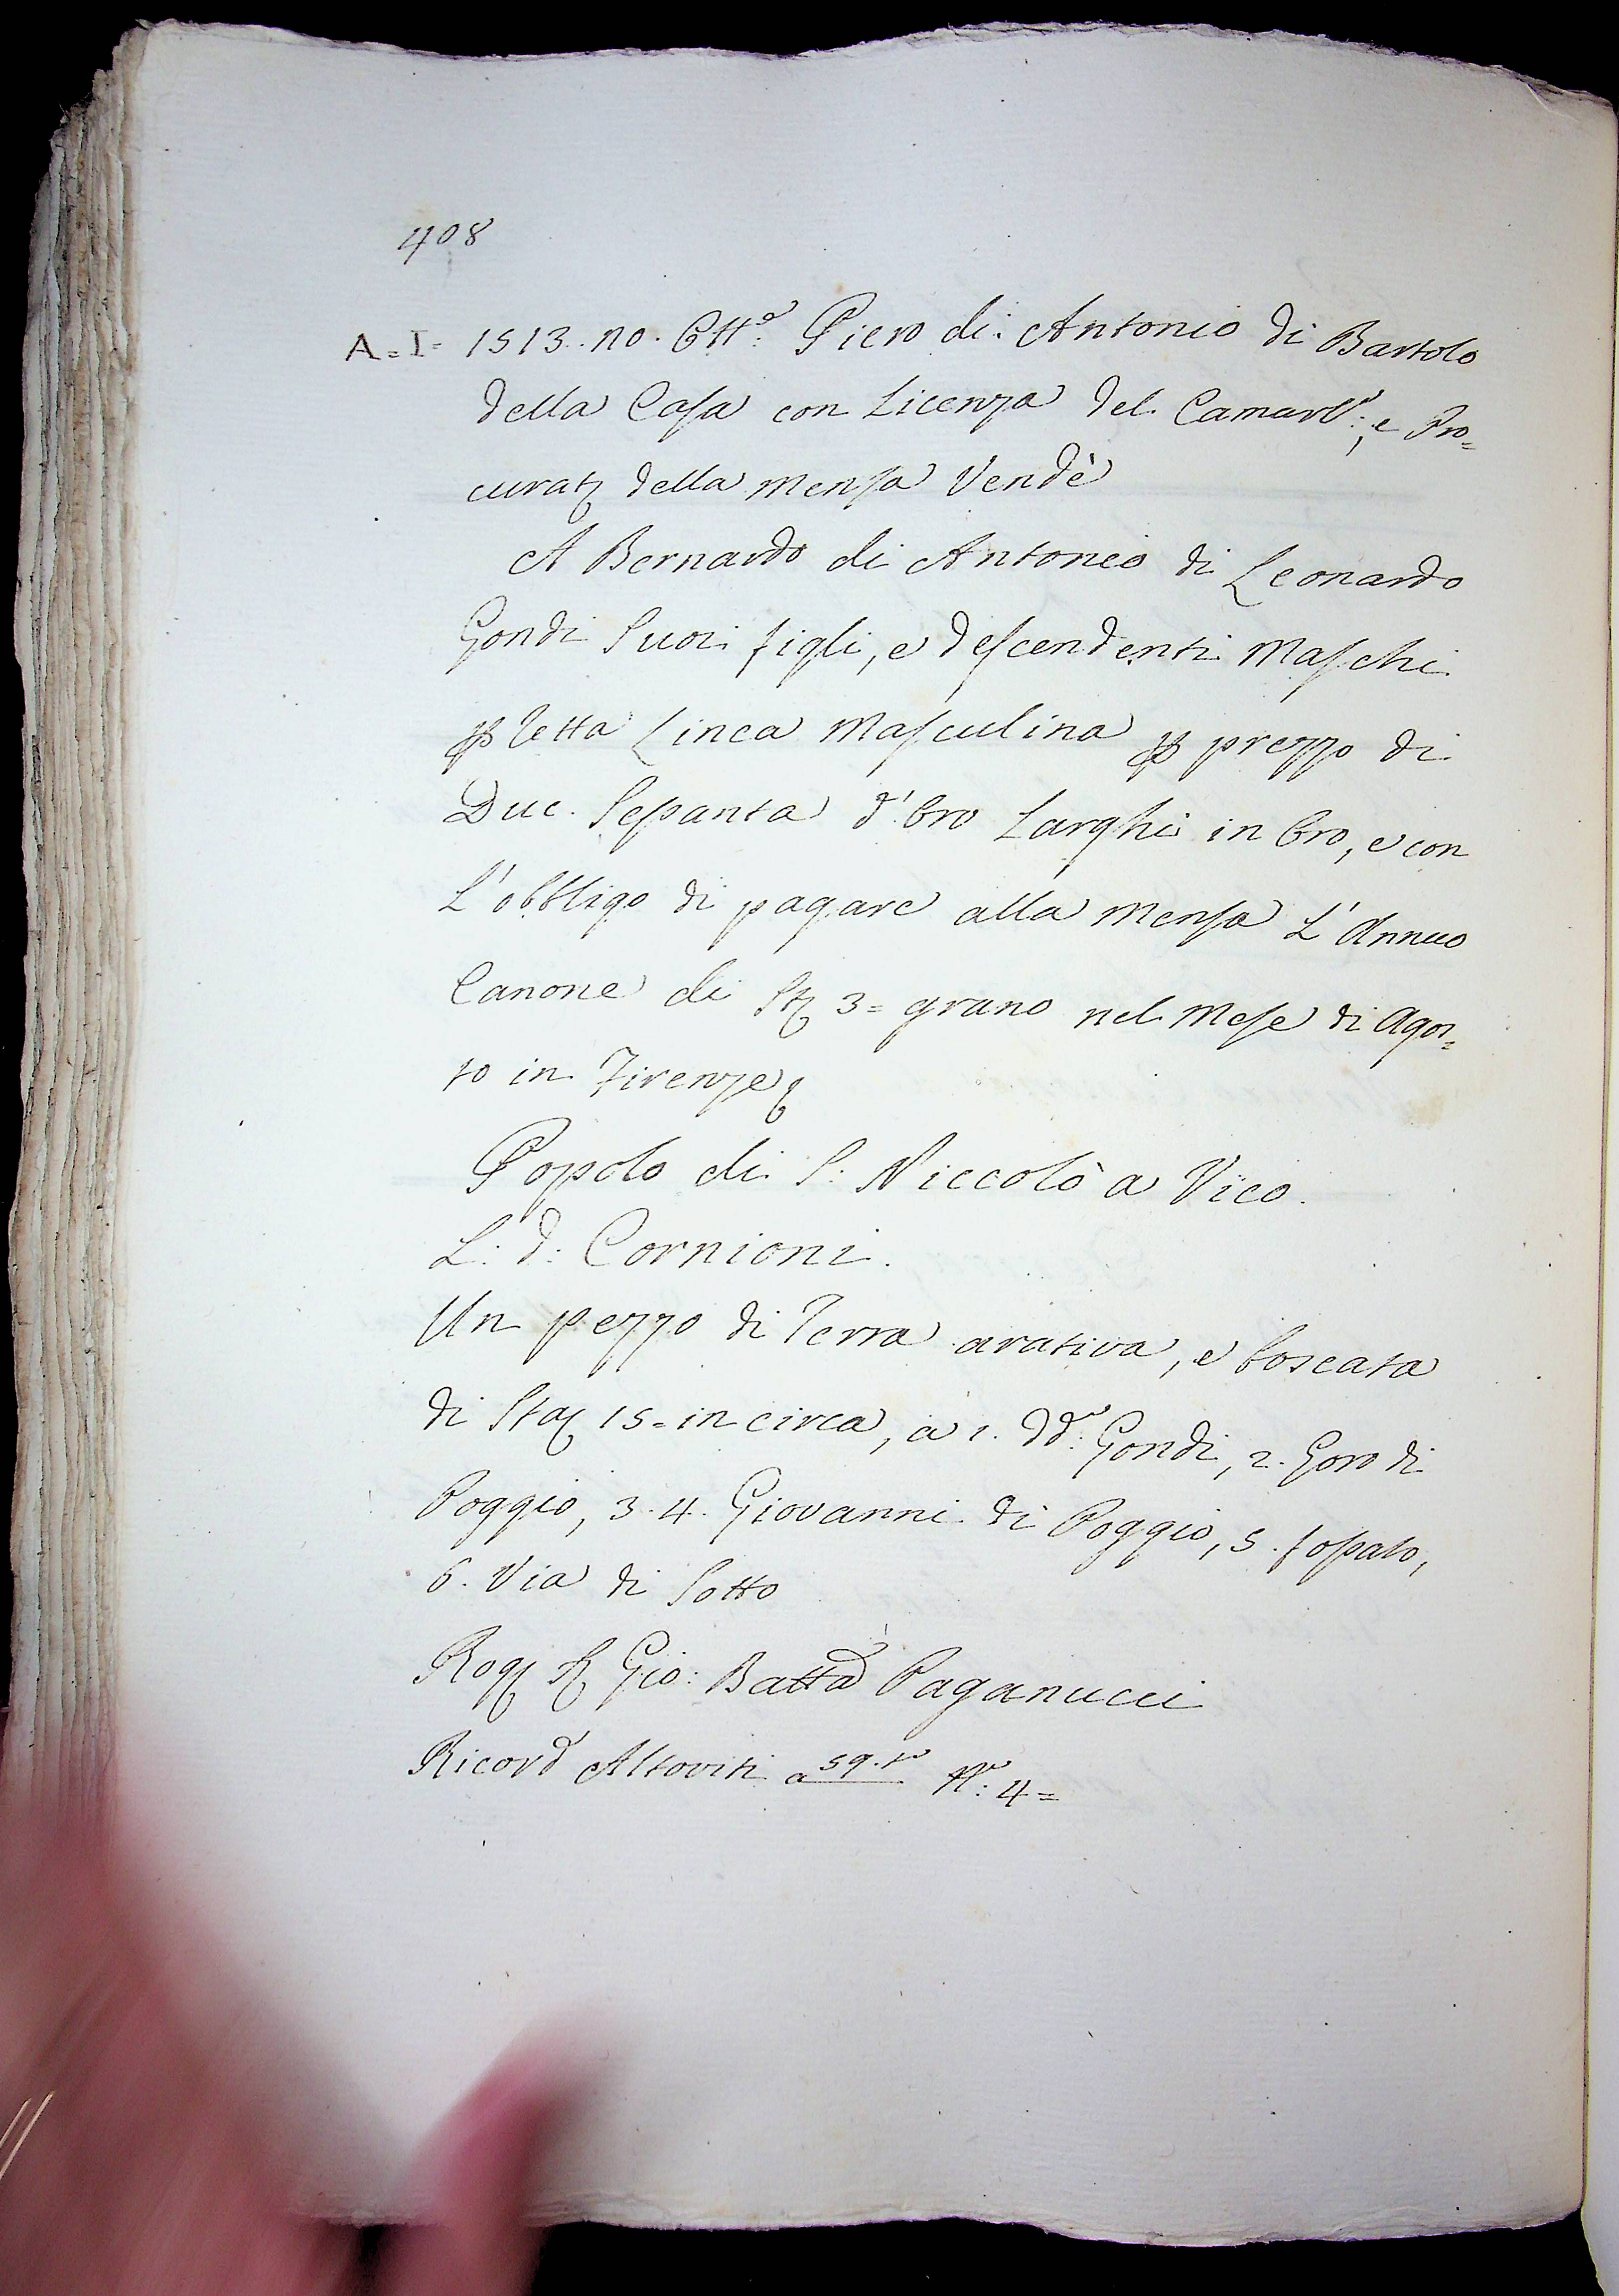 408
A = I = 1513. 20. Ott.e Piero di Antonio di Bartolo
della Casa con Licenza del Camarl.o; e Pro=
curat: della Mensa Vendè
A Bernardo di Antonio di Leonardo
Gondi Suoi figli, e descendenti Maschi
p retta Linea Masculina p prezzo di
Duc. Sessanta d'Oro Larghi in Oro, e con
L'obbligo di pagare alla Mensa L'Annuo
Canone di St: 3= grano nel Mese di Agos=
to in Firenze
Popolo di S: Niccolò a Vico.
L: d: Cornioni.
Un pezzo di Terra arativa, e boscata
di Sta: 15= in circa, a 1. dd.o Gondi, 2. Goro di
Poggio, 3. 4. Giovanni di Poggio, 5. fossato,
6. Via di Sotto
Rog: S: Gio: Batta Paganucci
Ricord Altoviti a 59. to N.o: 4=